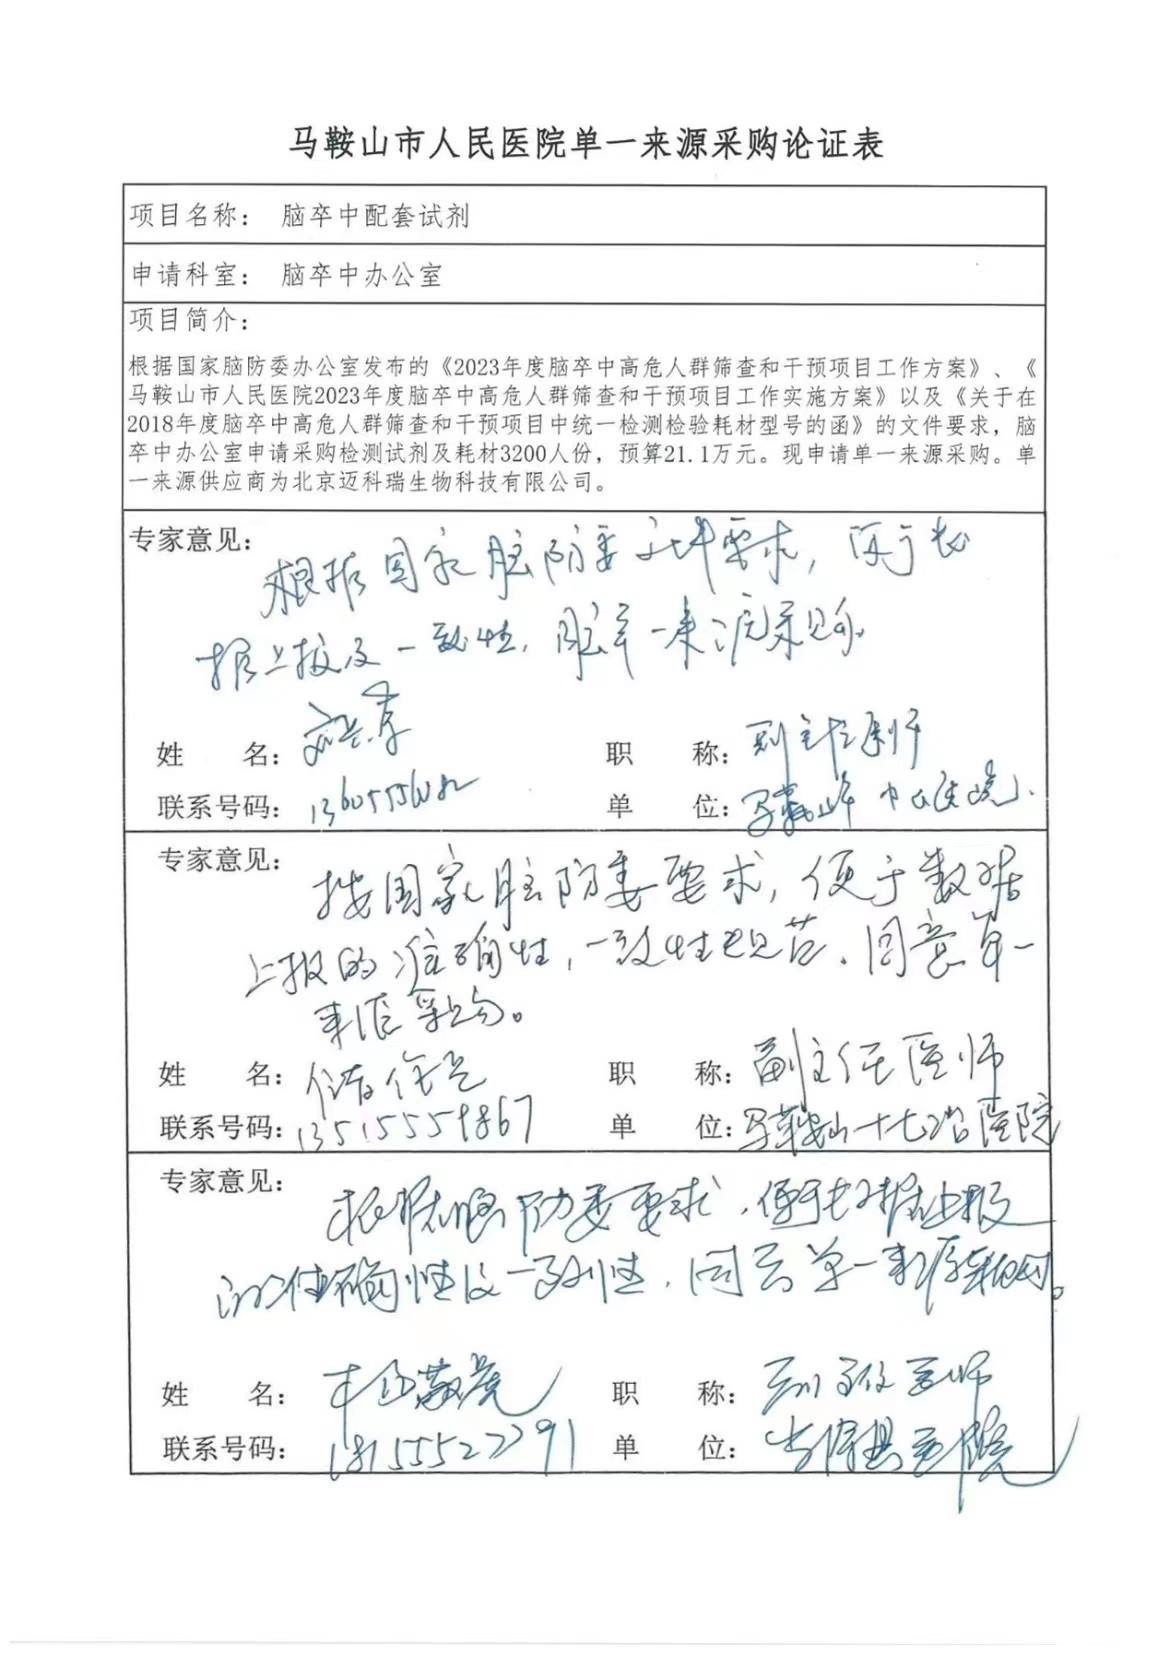 马鞍山市人民医院单一来源采购论证表
项目名称： 脑卒中配套试剂
申请科室： 脑卒中办公室
项目简介：
根据国家脑防委办公室发布的《2023年度脑卒中高危人群筛查和干预项目工作方案》、《
马鞍山市人民医院2023年度脑卒中高危人群筛查和干预项目工作实施方案》以及《关于在
2018年度脑卒中高危人群筛查和干预项目中统一检测检验耗材型号的函》的文件要求，脑
卒中办公室申请采购检测试剂及耗材3200人份，预算21.1万元。现申请单一来源采购。单
一来源供应商为北京迈科瑞生物科技有限公司。
专家意见：
根据国家脑防委文件要求，
上报及一致性，一来源采购
姓 名： 职 称：副主任医师
联系号码： 单 位：马鞍山市中心医院
专家意见：
按国家脑防委要求，便于数据
上报的准确性，一致性规范．同意单一
来源采购。
姓 名： 职 称：副主任医师
联系号码：13515559867 单 位：马鞍山十七冶医院
专家意见：
根据脑防委要求，便于数据上报
的准确性及一致性，同意单一来源采购。
姓 名： 职 称：副主任医师
联系号码：18155527791 单 位：